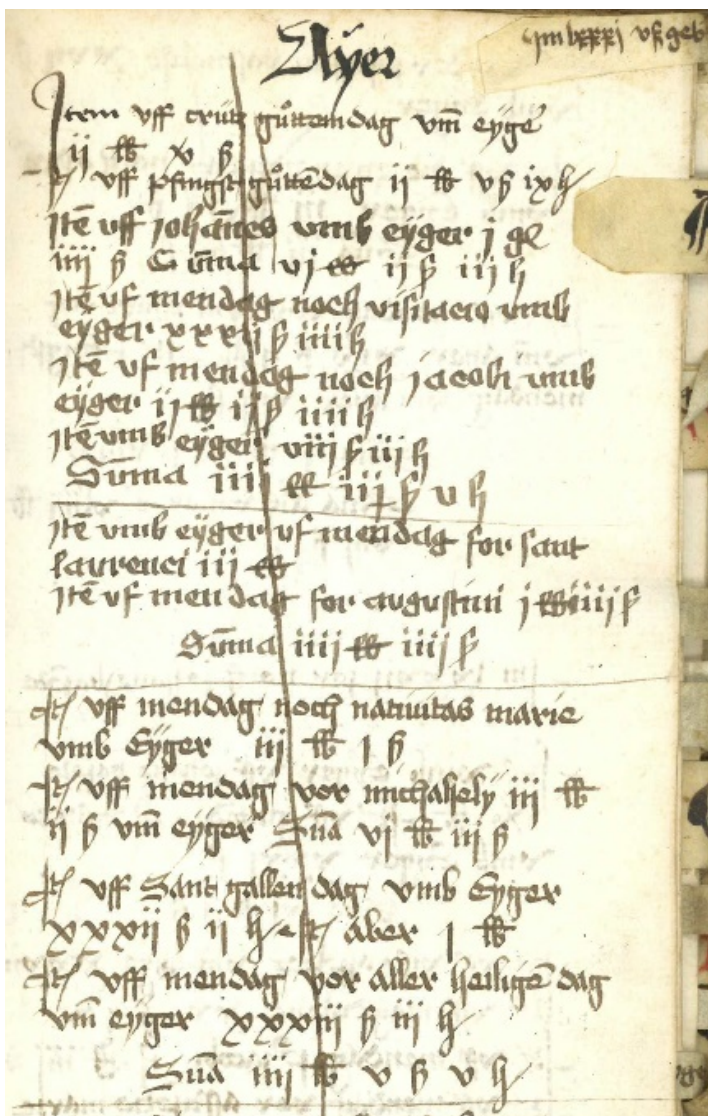 Ayer
Item vff crütz gůttemdag vm̄ eyge
ii lb x ß
It vff pfingst gůttēdag ij lb v ß ix h
Itē vff Johañes vmb eyger j gl
iiij ß Sūma vj lb ij ß iij h
Itē vf mendag noch visitacio vmb
eyger xxxii ß iiii h
Itē vf mendag noch jacobi vmb
eyger ij lb iij ß iiii h
Itē vmb eyger viii ß iij h
Sūma iiij lb iij ß v h
Itē vmb eyger vf mendag for sant
laurenci iii lb
Itē vf mendag for augustini j lb iiij ß
Sūma iiij lb iiij ß
It vff mendag noch natiuitas marie
vmb Eyger iij lb I ß
It vff mendag vor michahely iij lb
ij ß vm̄ eyger Sūa vj lb iij ß
It vff Sant gallen dag vmb Eyger
xxxii ß ij h It aber I lb
It vff mendag vor aller heiligē dag
vm̄ eyger xxxiij ß iij h
Sūa iiij lb v ß v h